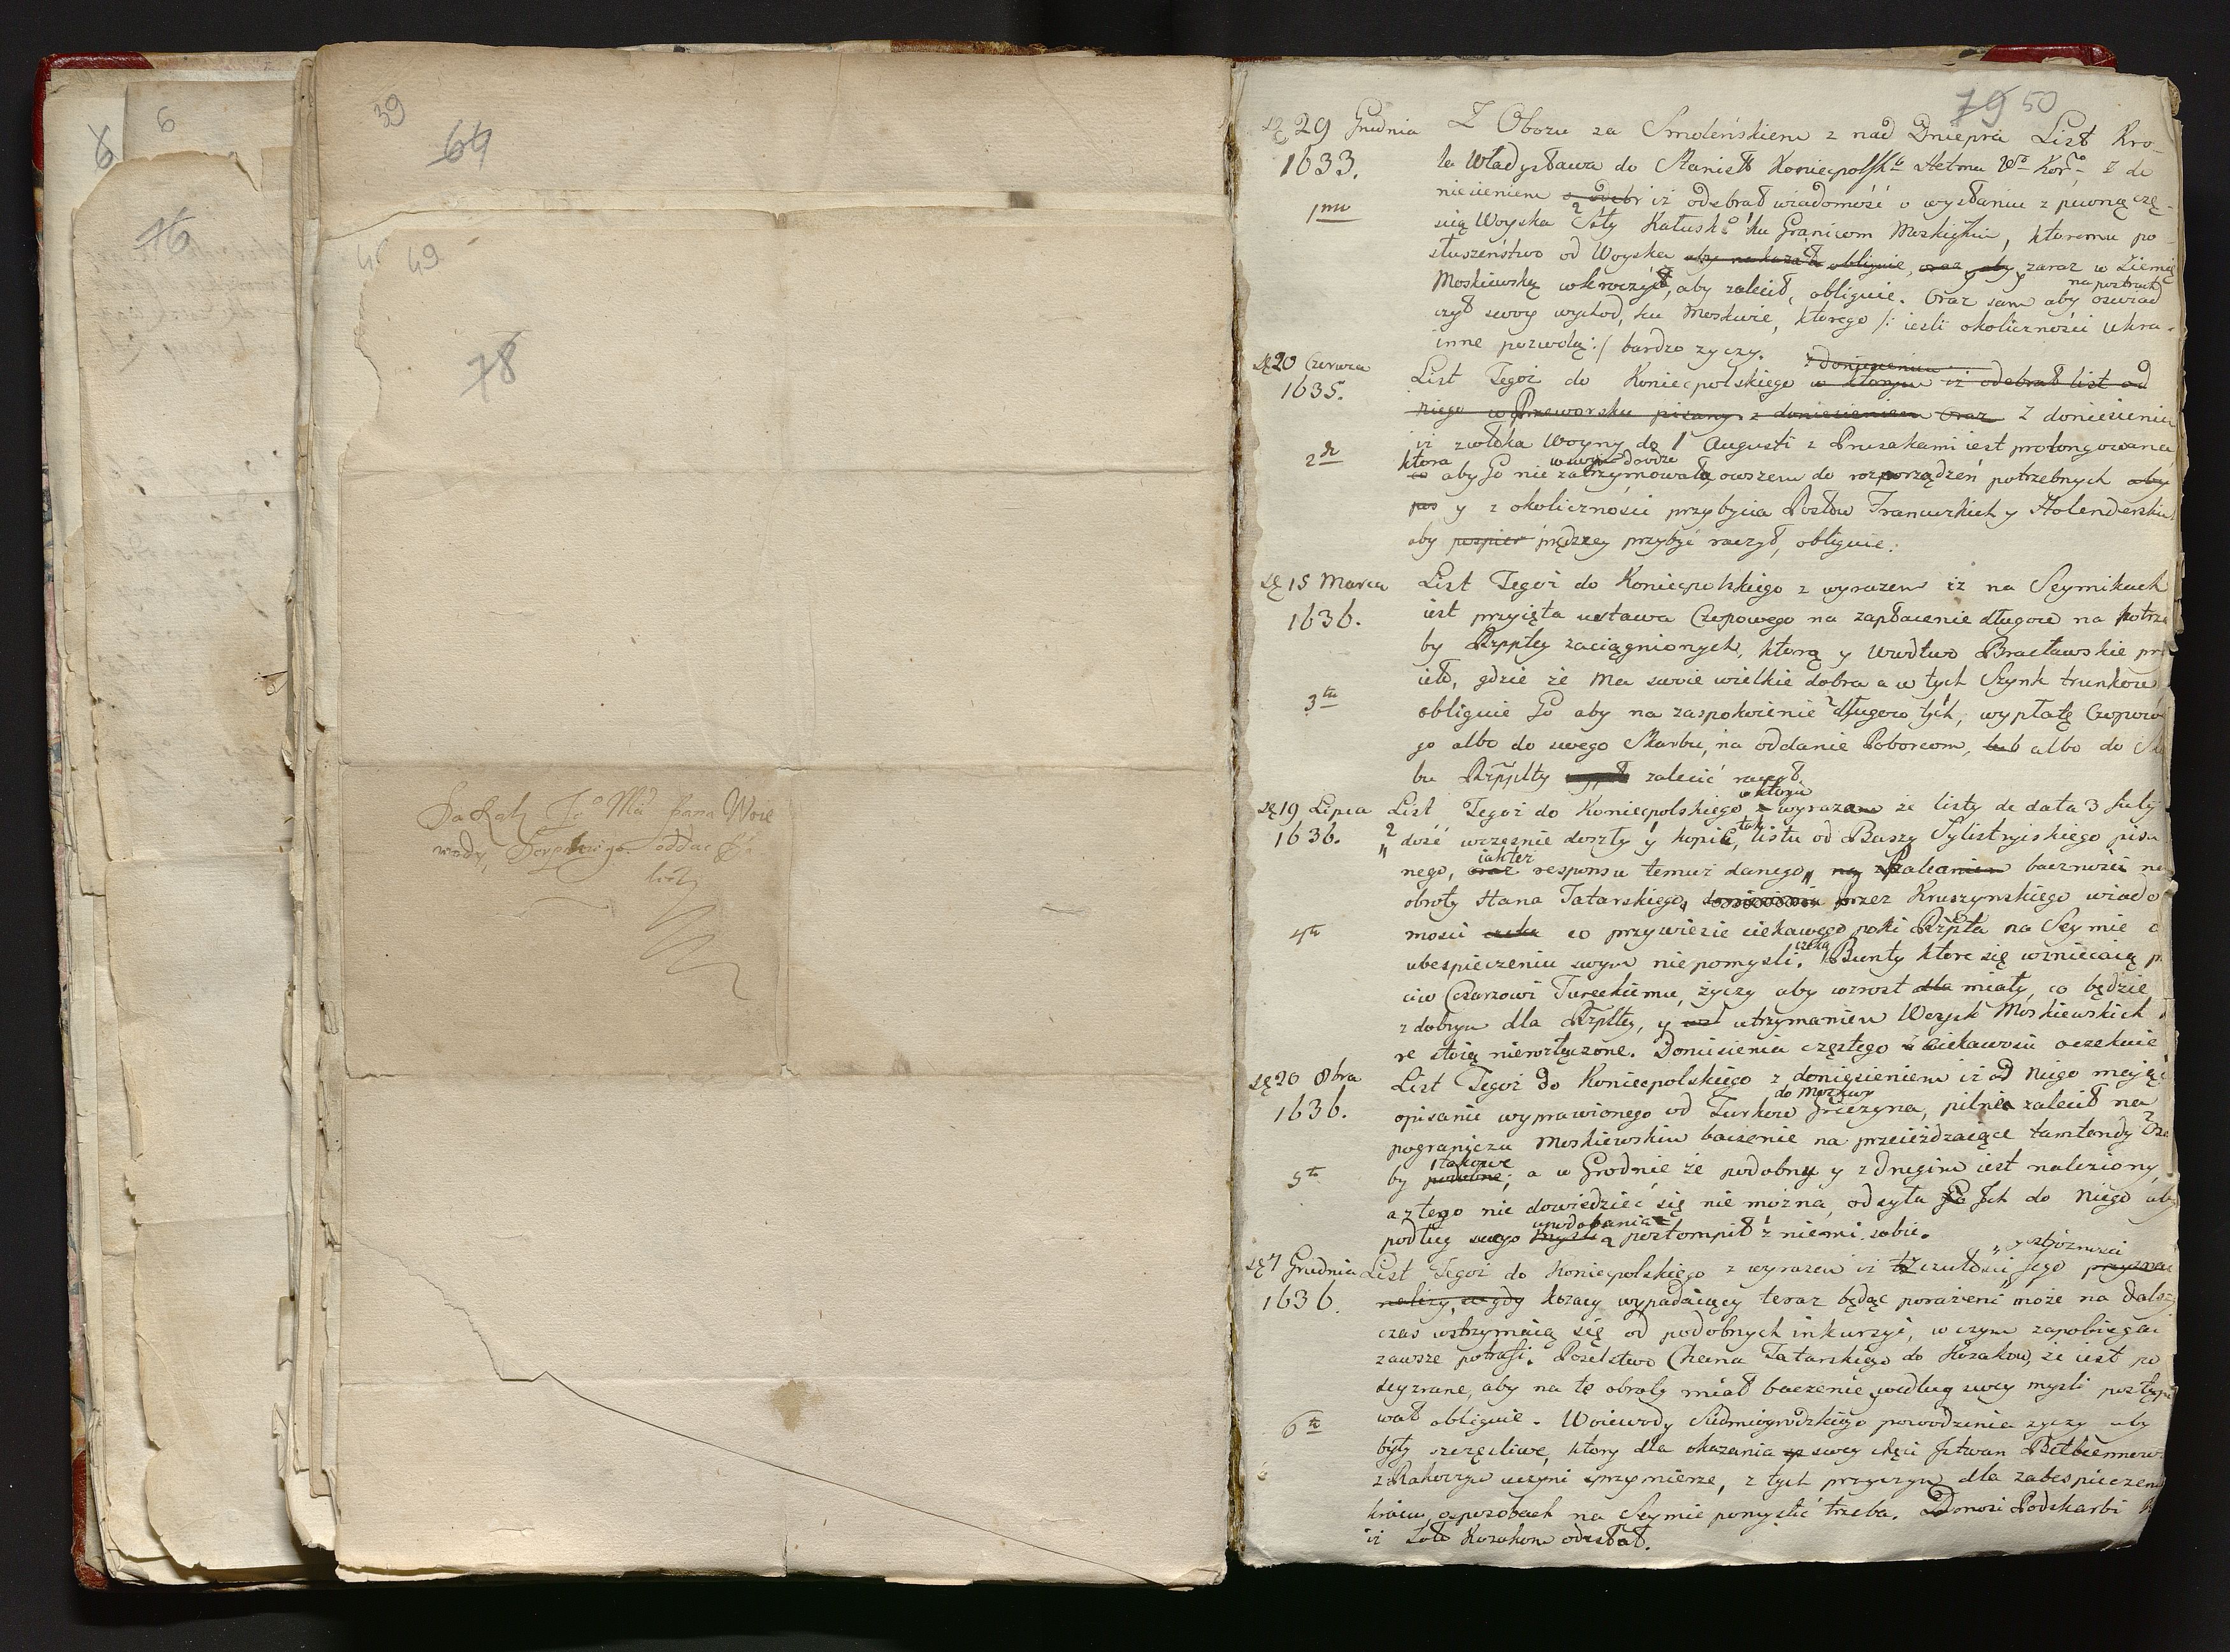 6
8
16
39
64
49
78
Pana Woie
wody oddac
79 50
29 Grudnia
1633.
Z Obozu za Smoleńskiem z nad Dniepra List Kro-
la Władysława do Stanisł Koniecpolsk Hetma Wo Kor, z do
1mo
niesieniem iż odebrał wiadomość o wysłaniu z pewną czę-
scią Woyska Kałusk ku Granicom Moskiewskim, ktoremu po-
słuszeństwo od Woyska aby nakazał obliguie, oraz aby zaraz w Ziemię
Moskiewską wkroczył, aby zalecił, obliguie. Oraz sam aby na postrach oswiad
czył swoy wychod, ku Moskwie, ktorego /: iesli okoliczności Ukra-
inne pozwolą :/ bardzo zyczy.
20 Czerwca
1635.
z doniesieniem
List Tegoż do Koniecpolskiego w ktorym iż odebrał list od
niego w Przeworsku pisany z doniesieniem oraz z doniesieniem
2do
iż zwłoka Woyny do 1 Augusti z Prusakami iest prolongowana,
ktora w swoje drodze
co aby Go nie zatrzymowała, owszem do rozporządzeń potrzebnych aby
pos y z okoliczności przybycia Posłow Francuzkich y Holenderskich
aby pospies prędzey przybyć raczył, obliguie.
15 Marca
1636.
List Tegoż do Koniecpolskiego z wyrazem iż na Seymikach
iest przyięta ustawa Czopowego na zapłacenie długow na potrze
by Rzpptey zaciągnionych, ktorą y Wwdtwo Bracławskie przy
3tio
ieło, gdzie że Ma swoie wielkie dobra a w tych Szynk trunkow
obliguie Go aby na zaspokoienie długow tych, wypłatę Czopowe
go albo do swego Skarbu, na oddanie Poborcom, lub albo do Ska
bu Rzppltey zalecić raczył.
19 Lipca
1636.
w ktorym
List Tegoż do Koniecpolskiego z wyrazem że listy de data 3 July
dość wczesnie doszły y kopie tak listu od Baszy Sylistryiskiego pisa
nego, iakteż oraz responsu temuż danego, zalecaniem baczności na
obroty Hana Tatarskiego, przez Kruszynskiego wiado
4to
mosci czeka co przywiezie ciekawego poki Rzpta na Seymie o
ubespieczeniu swym niepomysli. Bunty ktore się wzniecaią p
ciw Cesarzowi Tureckiemu, życzy aby wzrost dla miały, co będzie
z dobrym dla Rzpltey, y utrzymaniem Woysk Moskiewskich
re stoią nierozłączone. Doniesienia częstego ciekawości oczekuie
20 8bra
1636.
List Tegoż do Koniecpolskiego z doniesieniem iż od Niego maiąc
do Moskwy
opisanie wyprawionego od Turkow Greczyna, pilnie zalecił na
pograniczu Moskiewskim baczenie na przeieżdzaiące tamtendy Oso
5to
by takowe podobne; a w Grodnie że podobny y z drugim iest naleziony,
a z tego nic dowiedzieć się nie można, odsyła Go Ich do Niego aby
podług swego upodobania myśli postompił z niemi sobie.
7 Grudnia
1636.
y ostrożności
List Tegoż do Koniecpolskiego z wyrazem iż z czułości Jego przyznac
należy, w gdy kozacy wypadaiący teraz będąc porażeni może na dalszy
czas wstrzymaią się od podobnych inkursyi, w czym zapobiegac
zawsze potrafi. Poselstwo Chana Tatarskiego do Kozakow, że iest po
deyzrane, aby na te obroty miał baczenie, według swey mysli postępo
6to
wał obliguie. Woiewody Siedmiogrodzkiego powodzenia zyczy aby
były szczęsliwe, ktory dla okazania swey chęci Istwan Bethlemow
z Rakocym uczyni sprzymierze, z tych przyczyn dla zabespieczenia
kraiu, o sposobach na Seymie pomyślić trzeba. Donosi Podskarbi
iż Żołd Kozakom odesłał.